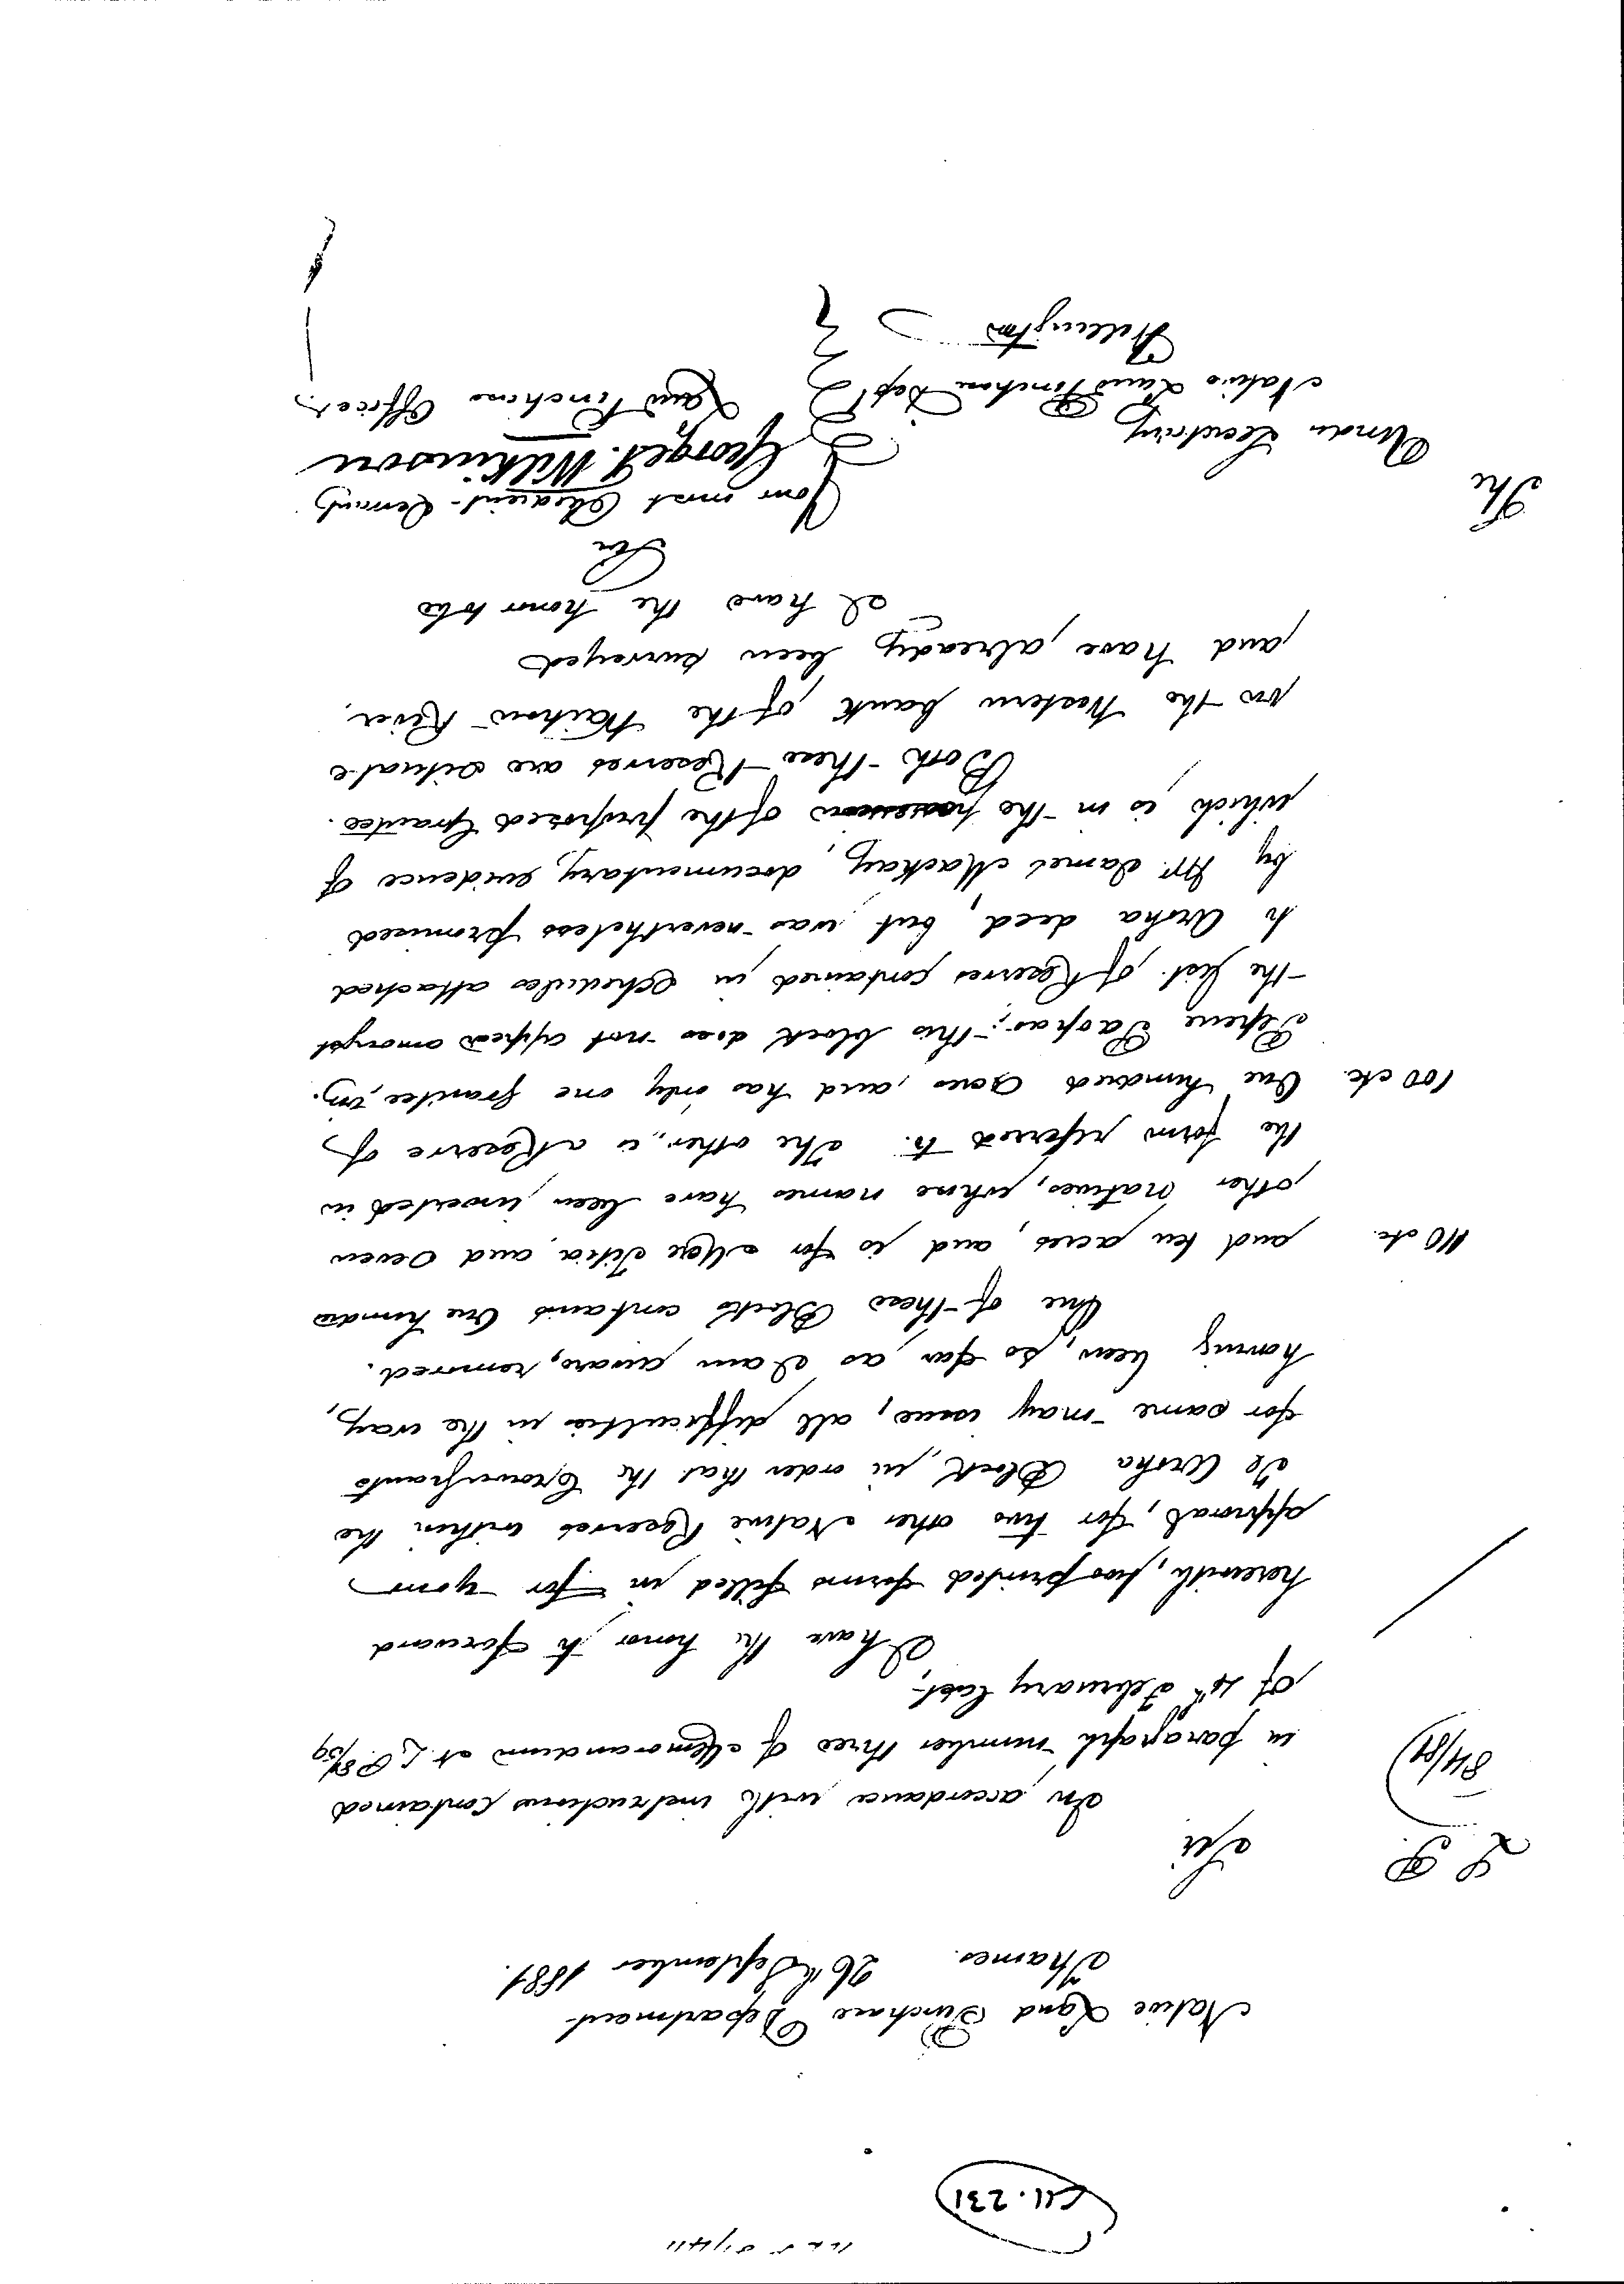 Cll. 231
Native Land Purchase Department
Thames. 26th September 1881.
L P.
84/81
Sir
In accordance with instructions contained
in paragraph number three of Memorandum at L.P. 81/59
of 4th February last,
I have the honor to forward
herewith, two printed forms filled in for your
approval, for two other Native Reserves within the
Te Aroha Block, in order that the Crown grants
for same may issue, all difficulties in the way,
having been, so far as I am aware, removed.
One of these Blocks contains One hundred
110 ac. and ten acres, and is for and seven
other natives, whose names have been inserted in
the form referred to. The other, is a Reserve of
100 ac. One hundred acres, and has only one grantee, viz.
this block does not appear amongst
the list of Reserves contained in Schedules attached
to Aroha deed, but was nevertheless promised
by Mr. James Mackay, documentary evidence of
which is in the possession of the proposed Grantee.
Both these Reserves are situate
on the Western bank of the Waihou River,
and have already been surveyed
I have the honor to be
Sir
Your most Obedient Servant,
George T. Wilkinson
Land Purchase Officer.
The
Under Secretary
Native Land Purchase Dept
Wellington